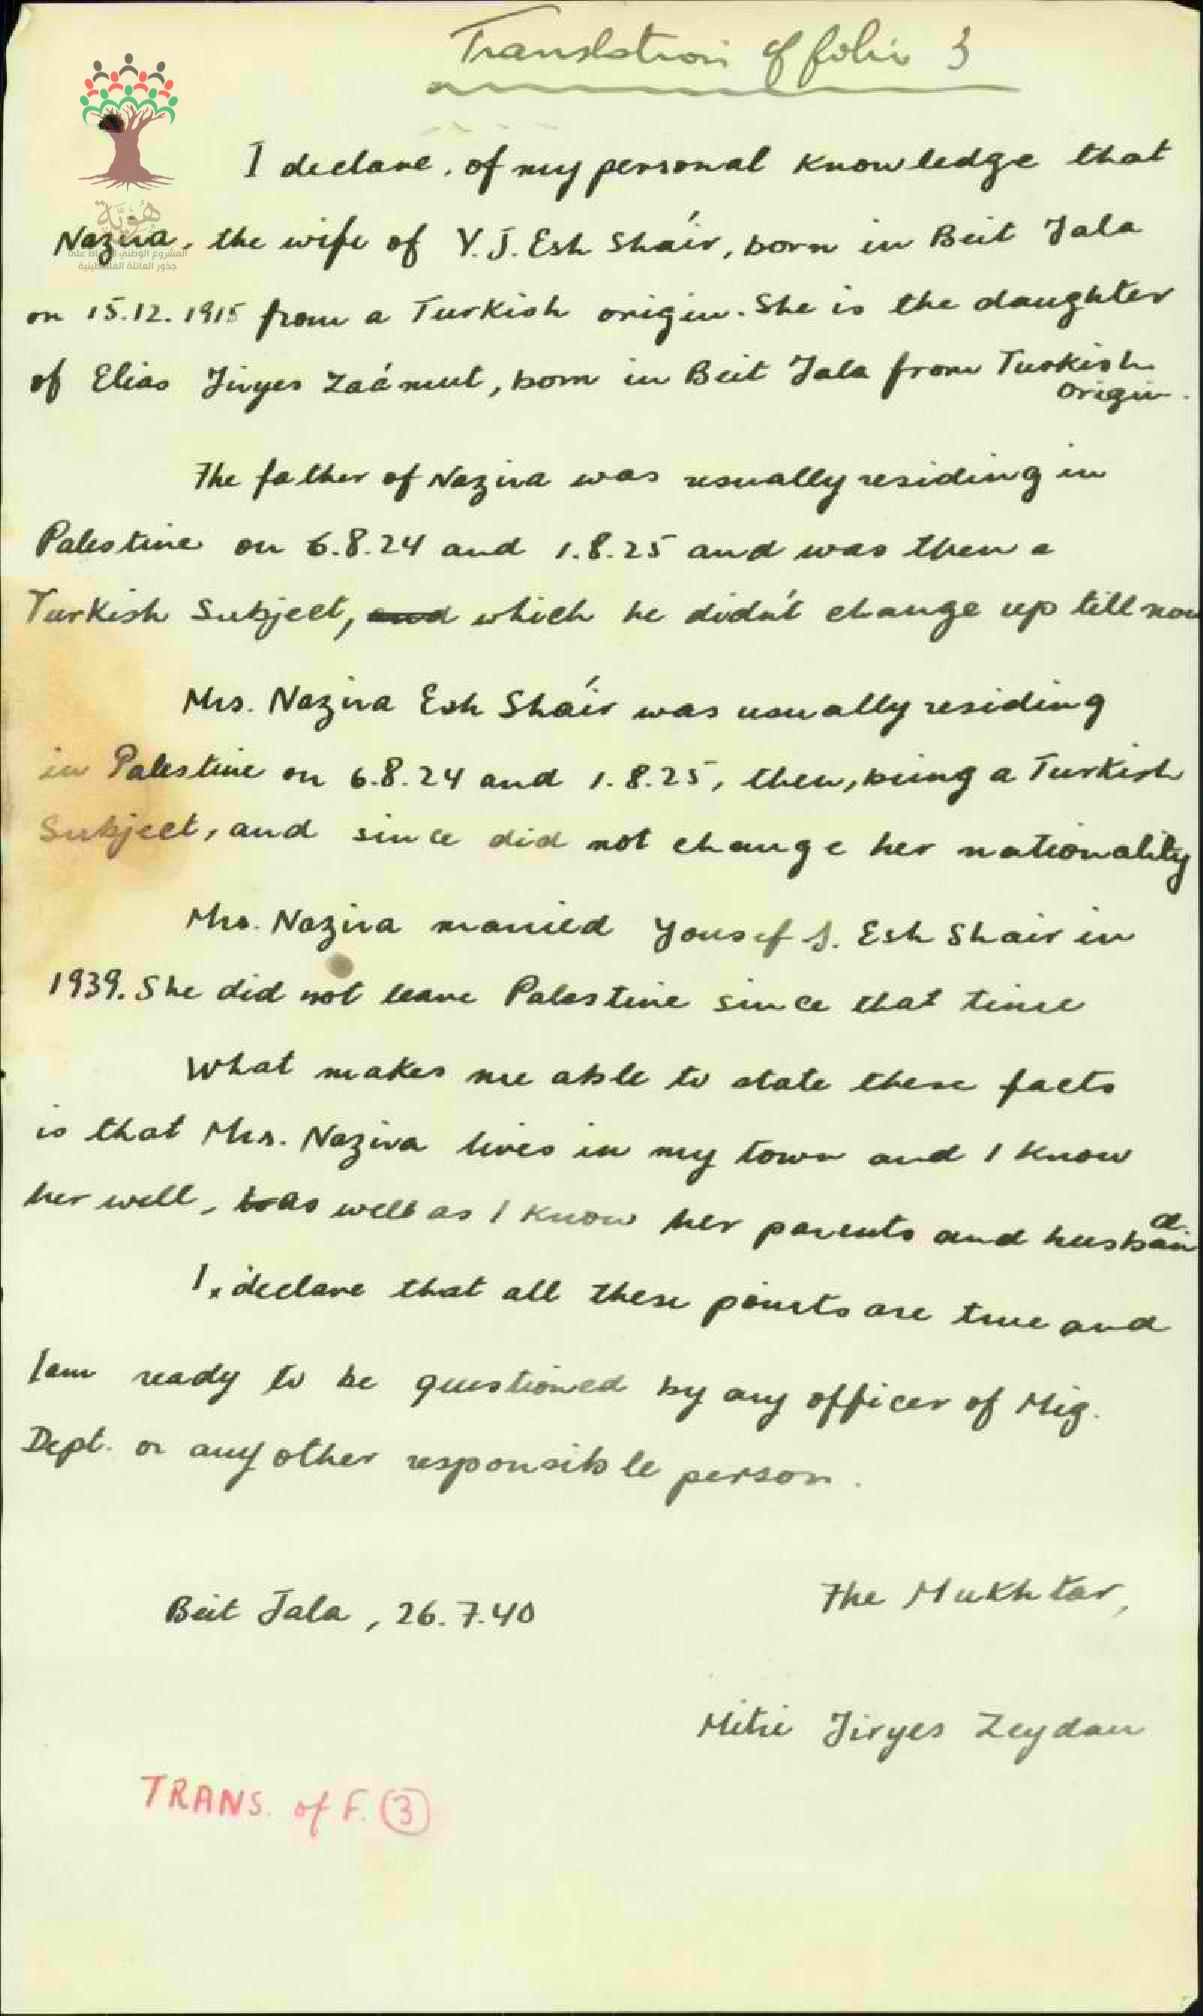 Translation of folio 3
هُويَّة
المشروع الوطني للحفاظ على
جذور العائلة الفلسطينية
I declare, of my personal knowledge that
Nazira, the wife of Y. J. Esh Sha'ir, born in Beit Jala
on 15.12.1915 from a Turkish origin. She is the daughter
of Elias Jiryes Zaámut, born in Beit Jala from Turkish
origin.
The father of Nazira was usually residing in
Palestine on 6.8.24 and 1.8.25 and was then a
Turkish Subject, and which he didn't change up till now
Mrs. Nazira Esh Sha'ir was usually residing
in Palestine on 6.8.24 and 1.8.25, then, being a Turkish
Subject, and since did not change her nationality
Mrs. Nazira married Yousef J. Esh Shair in
1939. She did not leave Palestine since that time
What makes me able to state these facts
is that Mrs. Nazira lives in my town and I know
her well, as well as I know her parents and husband
I, declare that all these points are true and
I am ready to be questioned by any officer of Mig.
Dept. or any other responsible person.
Beit Jala, 26.7.40
The Mukhtar,
Mitri Jiryes Zeydan
TRANS. of F. 3